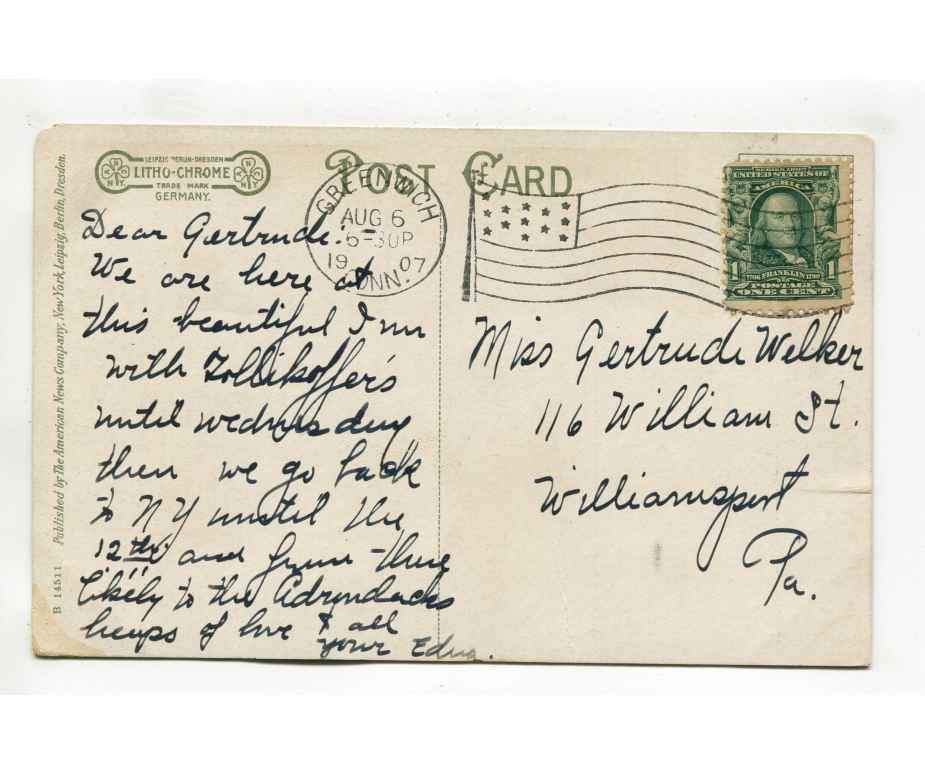 LEIPZIG BERLIN-DRESDEN
LITHO-CHROME
TRADE MARK
GERMANY.
POST CARD
GREENWICH
AUG 6
6-30P
1907
CONN.
SERIES 1902
UNITED STATES OF
AMERICA
1706 FRANKLIN 1790
1 1
POSTAGE
ONE CENT
Dear Gertrude:-
We are here at
this beautiful Inn
with Zollikoffer's
until wednesday
then we go back
to NY until the
12th and from there
likely to the Adrondacks
heaps of love & all
your Edna.
Miss Gertrude Welker
116 William St.
Williamsport
Pa.
B 14511 Published by The American News Company, New York, Leipzig, Berlin, Dresden.